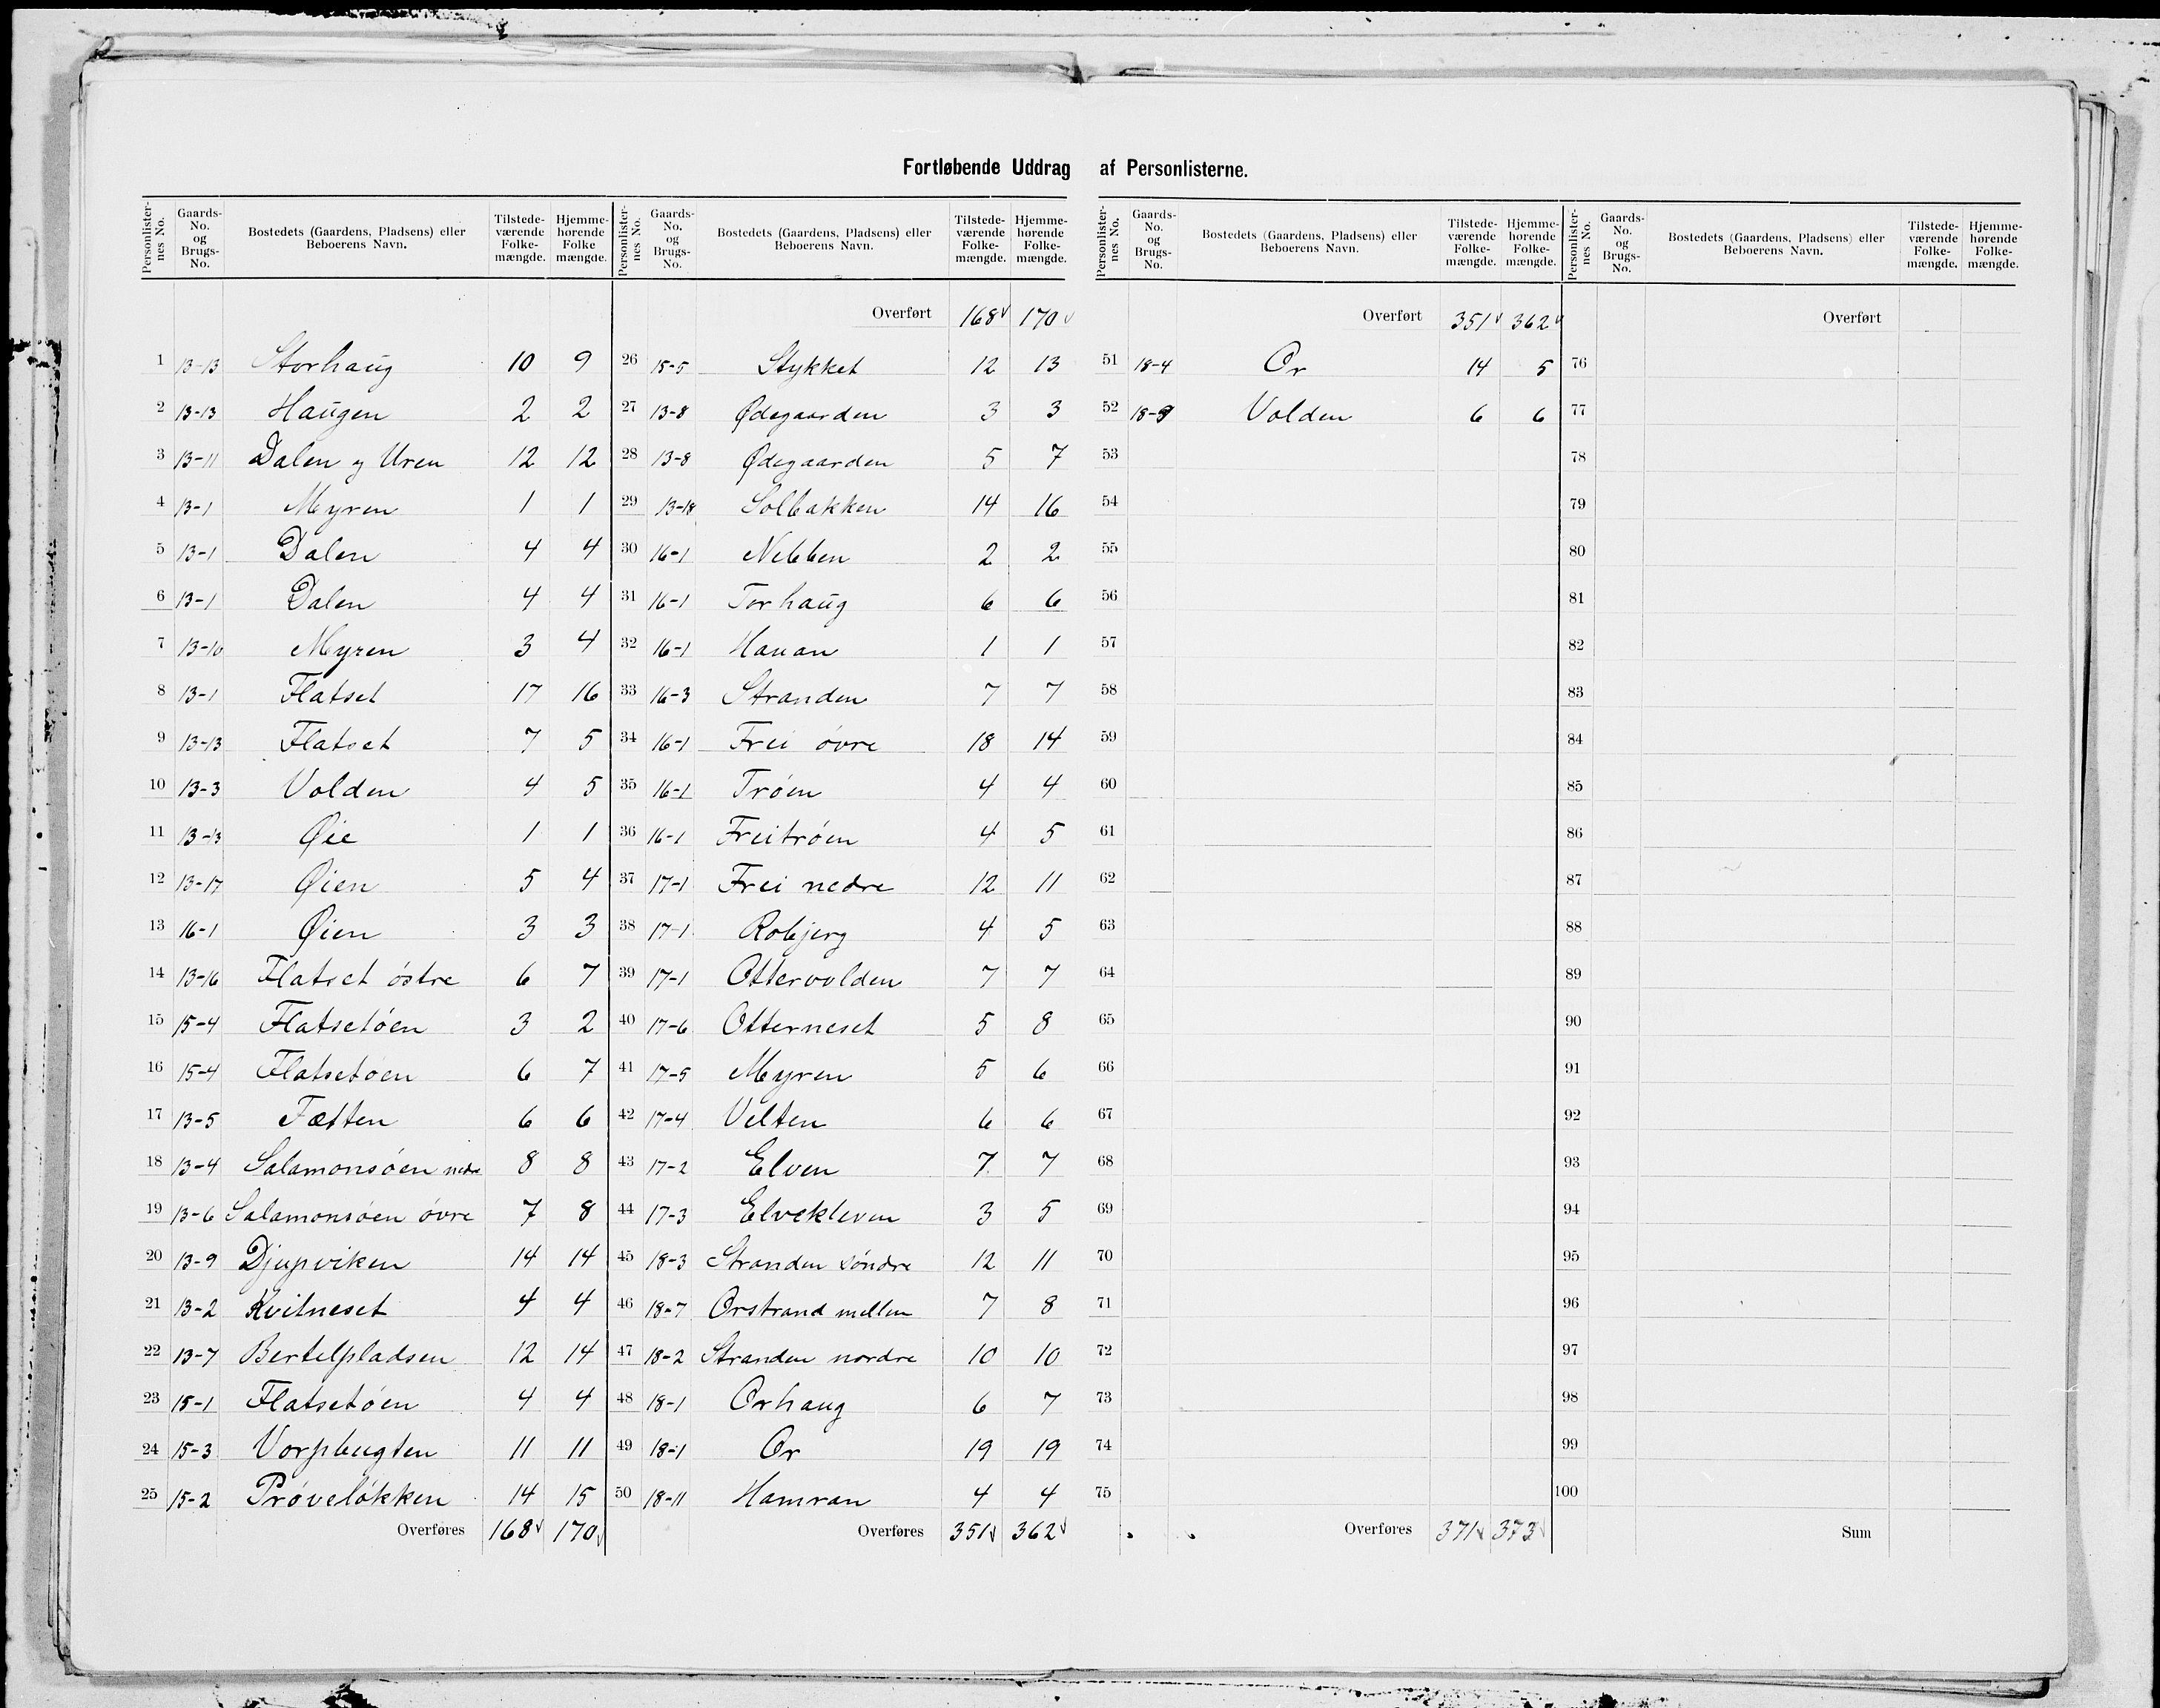 Fortløbende Uddrag af Personlisterne.
Personlister-nes No. Gaards-No. og Brugs-No. Bostedets (Gaardens, Pladsens) eller Beboerens Navn. Tilstede-værende Folke-mængde. Hjemme-hørende Folke mængde.
1 13-13 Storhaug 10 9
2 13-13 Haugen 2 2
3 13-11 Dalen og Uren 12 12
4 13-1 Myren 1 1
5 13-1 Dalen 4 4
6 13-1 Dalen 4 4
7 13-10 Myren 3 4
8 13-1 Flatset 17 16
9 13-13 Flatset 7 5
10 13-3 Volden 4 5
11 13-13 Øie 1 1
12 13-17 Øien 5 4
13 16-1 Øien 3 3
14 13-16 Flatset östre 6 7
15 15-4 Flatsetöen 3 2
16 15-4 Flatsetöen 6 7
17 13-5 Fætten 6 6
18 13-4 Salamonsöen nedre 8 8
19 13-6 Salamonsöen övre 7 8
20 13-9 Djupviken 14 14
21 13-2 Kvitneset 4 4
22 13-7 Bertelpladsen 12 14
23 15-1 Flatsetöen 4 4
24 15-3 Vorpbugten 11 11
25 15-2 Prövelökken 14 15
Overføres 168 170
Personlister-nes No. Gaards-No. og Brugs-No. Bostedets (Gaardens, Pladsens) eller Beboerens Navn. Tilstede-værende Folke-mængde. Hjemme-hørende Folke-mængde.
Overført 168 170
26 15-5 Stykket 12 13
27 13-8 Ødegaarden 3 3
28 13-8 Ødegaarden 5 7
29 13-18 Solbakken 14 16
30 16-1 Nebben 2 2
31 16-1 Torhaug 6 6
32 16-1 Hauan 1 1
33 16-3 Stranden 7 7
34 16-1 Frei övre 18 14
35 16-1 Tröen 4 4
36 16-1 Freitröen 4 5
37 17-1 Frei nedre 12 11
38 17-1 Robjerg 4 5
39 17-1 Ottervolden 7 7
40 17-6 Otterneset 5 8
41 17-5 Myren 5 6
42 17-4 Velten 6 6
43 17-2 Elven 7 7
44 17-3 Elvekleven 3 5
45 18-3 Stranden söndre 12 11
46 18-7 Orstrand mellem 7 8
47 18-2 Stranden nordre 10 10
48 18-1 Orhaug 6 7
49 18-1 Or 19 19
50 18-11 Hamran 4 4
Overføres 351 362
Personlister-nes No. Gaards-No. og Brugs-No. Bostedets (Gaardens, Pladsens) eller Beboerens Navn. Tilstede-værende Folke-mængde. Hjemme-hørende Folke-mængde.
Overført 351 362
51 18-4 Or 14 5
52 18-9 Volden 6 6
53
54
55
56
57
58
59
60
61
62
63
64
65
66
67
68
69
70
71
72
73
74
75
Overføres 371 373
Personlister-nes No. Gaards-No. og Brugs-No. Bostedets (Gaardens, Pladsens) eller Beboerens Navn. Tilstede-værende Folke-mængde. Hjemme-hørende Folke-mængde.
Overført
76
77
78
79
80
81
82
83
84
85
86
87
88
89
90
91
92
93
94
95
96
97
98
99
100
Sum